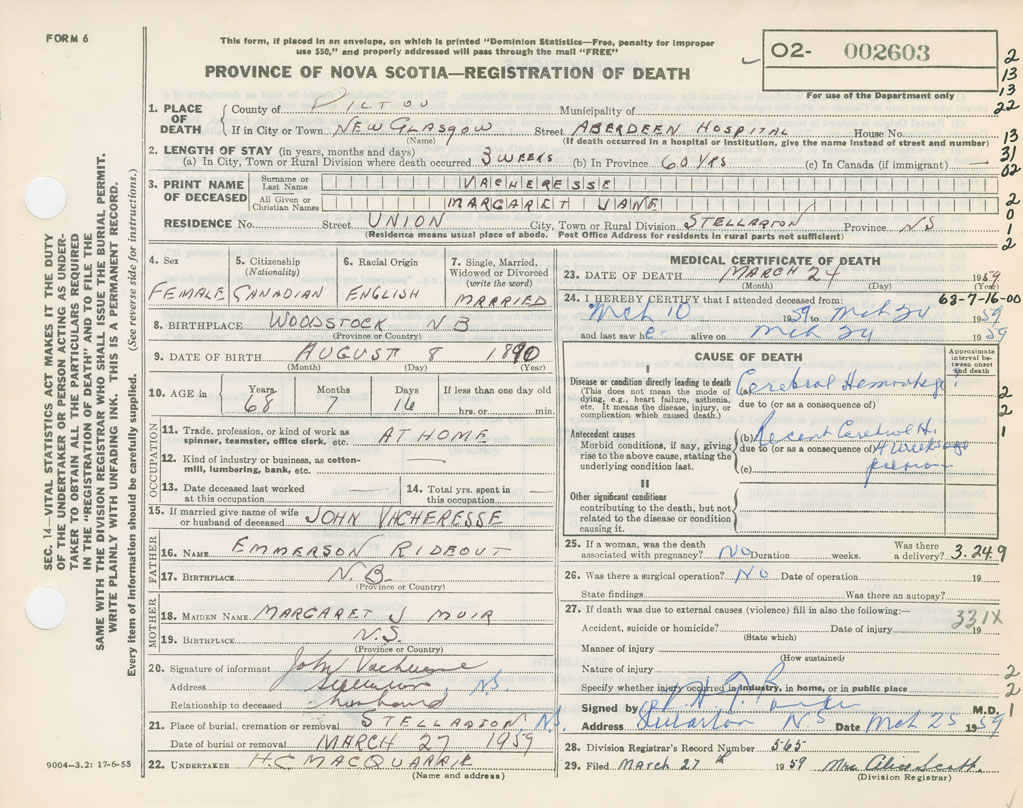 FORM 6
This form, if placed in an envelope, on which is printed "Dominion Statistics—Free, penalty for improper
use $50," and properly addressed will pass through the mail "FREE"
PROVINCE OF NOVA SCOTIA—REGISTRATION OF DEATH
O2- 002603
For use of the Department only
2
13
13
22
13
31
02
2
0
1
2
SEC. 14—VITAL STATISTICS ACT MAKES IT THE DUTY
OF THE UNDERTAKER OR PERSON ACTING AS UNDER-
TAKER TO OBTAIN ALL THE PARTICULARS REQUIRED
IN THE "REGISTRATION OF DEATH" AND TO FILE THE
SAME WITH THE DIVISION REGISTRAR WHO SHALL ISSUE THE BURIAL PERMIT.
WRITE PLAINLY WITH UNFADING INK. THIS IS A PERMANENT RECORD.
Every item of information should be carefully supplied. (See reverse side for instructions.)
1. PLACE OF DEATH
County of PICTOU Municipality of
If in City or Town NEW GLASGOW Street ABERDEEN HOSPITAL House No.
(Name) (If death occurred in a hospital or institution, give the name instead of street and number)
2. LENGTH OF STAY (in years, months and days)
(a) In City, Town or Rural Division where death occurred 3 WEEKS (b) In Province 60 YRS (c) In Canada (if immigrant) —
3. PRINT NAME OF DECEASED
Surname or Last Name VACHERESSE
All Given or Christian Names MARGARET JANE
RESIDENCE No. Street UNION City, Town or Rural Division STELLARTON Province NS
(Residence means usual place of abode. Post Office Address for residents in rural parts not sufficient)
4. Sex
FEMALE
5. Citizenship (Nationality)
CANADIAN
6. Racial Origin
ENGLISH
7. Single, Married, Widowed or Divorced (write the word)
MARRIED
8. BIRTHPLACE WOODSTOCK NB
(Province or Country)
9. DATE OF BIRTH AUGUST 8 1890
(Month) (Day) (Year)
10. AGE in
Years 68
Months 7
Days 16
If less than one day old
hrs. or min.
OCCUPATION
11. Trade, profession, or kind of work as spinner, teamster, office clerk, etc. AT HOME
12. Kind of industry or business, as cotton-mill, lumbering, bank, etc. —
13. Date deceased last worked at this occupation —
14. Total yrs. spent in this occupation —
15. If married give name of wife or husband of deceased JOHN VACHERESSE
FATHER
16. NAME EMMERSON RIDEOUT
17. BIRTHPLACE N.B.
(Province or Country)
MOTHER
18. MAIDEN NAME MARGARET J MUIR
19. BIRTHPLACE N.S.
(Province or Country)
20. Signature of informant John Vacheresse
Address Stellarton, N.S.
Relationship to deceased husband
21. Place of burial, cremation or removal STELLARTON N.S.
Date of burial or removal MARCH 27 1959
22. UNDERTAKER H.C MACQUARRIE
(Name and address)
9004—3.2: 17-6-55
MEDICAL CERTIFICATE OF DEATH
23. DATE OF DEATH MARCH 24 1959
(Month) (Day) (Year)
24. I HEREBY CERTIFY that I attended deceased from: 68-7-16-00
Mch 10 1959 to Mch 24 1959
and last saw he- alive on Mch 24 1959
CAUSE OF DEATH
Approximate interval between onset and death
I
Disease or condition directly leading to death
(This does not mean the mode of dying, e.g., heart failure, asthenia, etc. It means the disease, injury, or complication which caused death.)
(a) Cerebral Hemorrhage
due to (or as a consequence of)
Antecedent causes
Morbid conditions, if any, giving rise to the above cause, stating the underlying condition last.
(b) Recent Cerebral H.
due to (or as a consequence of)
(c)
II
Other significant conditions contributing to the death, but not related to the disease or condition causing it.
2
2
1
25. If a woman, was the death associated with pregnancy? NO Duration weeks. Was there a delivery? 3.249
26. Was there a surgical operation? NO Date of operation 19
State findings Was there an autopsy?
27. If death was due to external causes (violence) fill in also the following:—
331X
Accident, suicide or homicide? Date of injury 19
(State which)
Manner of injury
(How sustained)
Nature of injury
Specify whether injury occurred in industry, in home, or in public place
Signed by M.D.
Address Stellarton N.S Date Mch 25 1959
2
2
1
28. Division Registrar's Record Number 565
29. Filed March 27 1959 Mrs Alice Scott
(Division Registrar)